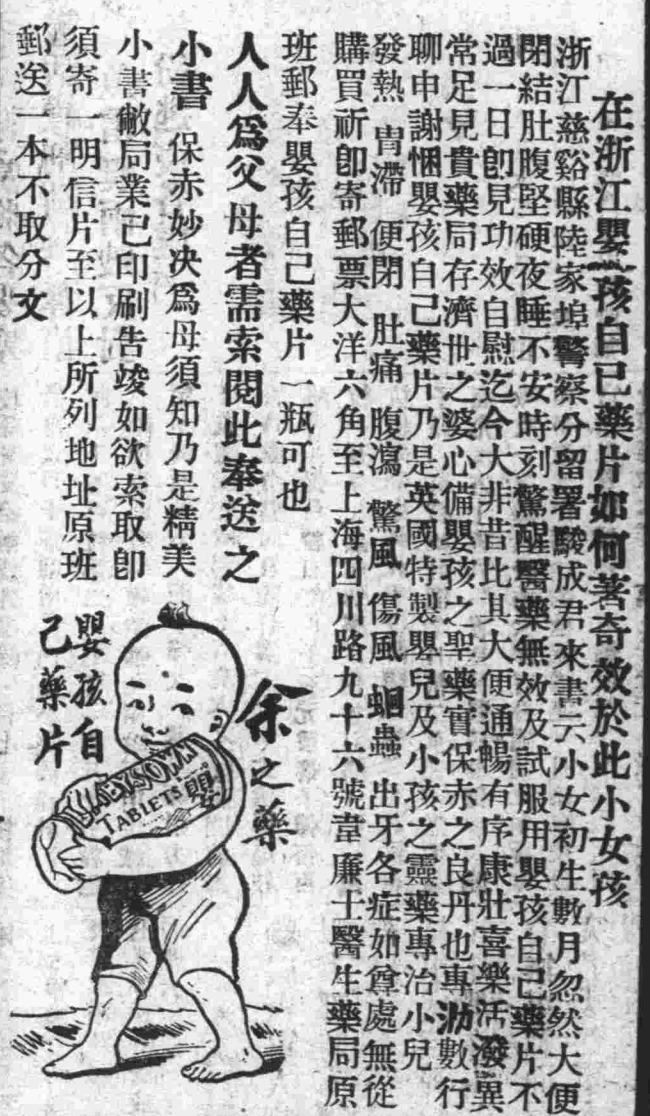 在浙江嬰孩自己藥片如何著奇效於此小女孩
浙江慈谿縣陸家埠警察分留署駿成君來書云小女初生數月忽然大便
閉結肚腹堅硬夜睡不安時刻驚醒醫藥無效及試服用嬰孩自己藥片不
過一日卽見功效自慰迄今大非昔比其大便通暢有序康壯喜樂活潑異
常足見貴藥局存濟世之婆心備嬰孩之聖藥實保赤之良丹也專泐數行
聊申謝悃嬰孩自己藥片乃是英國特製嬰兒及小孩之靈藥專治小兒
發熱 胃滯 便閉 肚痛 腹瀉 驚風 傷風 蛔蟲 出牙各症如尊處無從
購買祈卽寄郵票大洋六角至上海四川路九十六號韋廉士醫生藥局原
班郵奉嬰孩自己藥片一瓶可也
人人爲父母者需索閱此奉送之
小書 保赤妙决爲母須知乃是精美
小書敝局業已印刷告竣如欲索取卽
須寄一明信片至以上所列地址原班
郵送一本不取分文
余之藥
嬰孩自
己藥片
BABY'S OWN
TABLETS
嬰